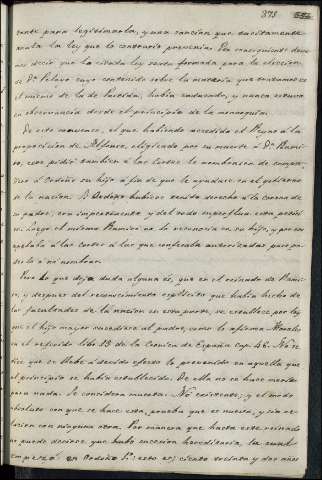 375
rante para legitimarla, y una sancion que tacitamente
anula la ley que lo contrario prevenia. Por consiguiente devemos
decir que la citada ley seria formada para la eleccion
de Dn. Pelayo cuyo contenido sobre la materia que tratamos es
el mismo de la de Partida, havia caducado, y nunca estuvo
en observancia desde el principio de la monarquia.
De esto convence, el que habiendo accedido el Reyno á la
proposicion de Alfonso, eligiendo por su muerte á Dn. Ramiro,
este pidió tambien á las Cortes le nombrasen de compañero
á Ordoño su hijo á fin de que le ayudase en el gobierno
de la nacion. Si Ordoño hubiese tenido derecho á la corona de
su padre, era impertinente y del todo superflua esta peticion
luego el mismo Ramiro no lo reconocia en su hijo, y por eso
apelaba á las cortes á las que confesaba autorizadas para
ó no nombrar.
Pero lo que deja duda alguna es, que en el reinado de Ramiro,
y despues del reconocimiento explicito que habia hecho de
las facultades de la nacion en esta parte, se establece por ley
que el hijo mayor sucediera al padre, como lo afirma Morales
en el referido libro 13 de la Coronica de España Cap. 46. No
dice que se llebe á devido efecto lo prevenido en aquella que
al principio se habia establecido. De ella no se hace mencion
para nada. Se considera muerta: No existente; y el modo
absoluto con que se hace esta, prueba que es nueva, y sin relacion
con ninguna otra. Por manera que hasta este reinado
no puede decirse que hubo succesion hereditaria, la cual
empezó en Ordoño 1º: esto es; ciento treinta y dos años